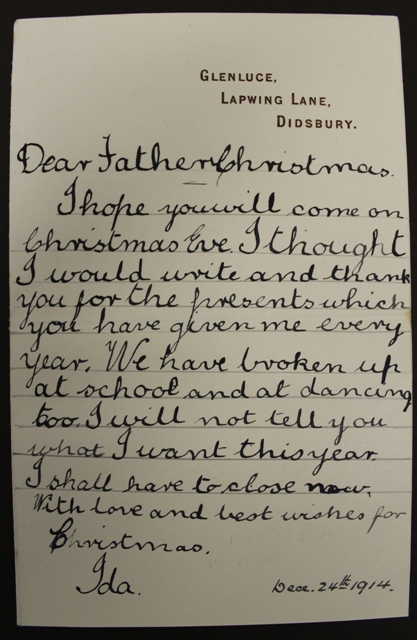 GLENLUCE,
LAPWING LANE,
DIDSBURY.
Dear Father Christmas.
I hope you will come on
Christmas Eve. I thought
I would write and thank
you for the presents which
you have given me every
year. We have broken up
at school and at dancing
too. I will not tell you
what I want this year.
I shall have to close now.
With love and best wishes for
Christmas.
Ida.
Dec. 24th 1914.